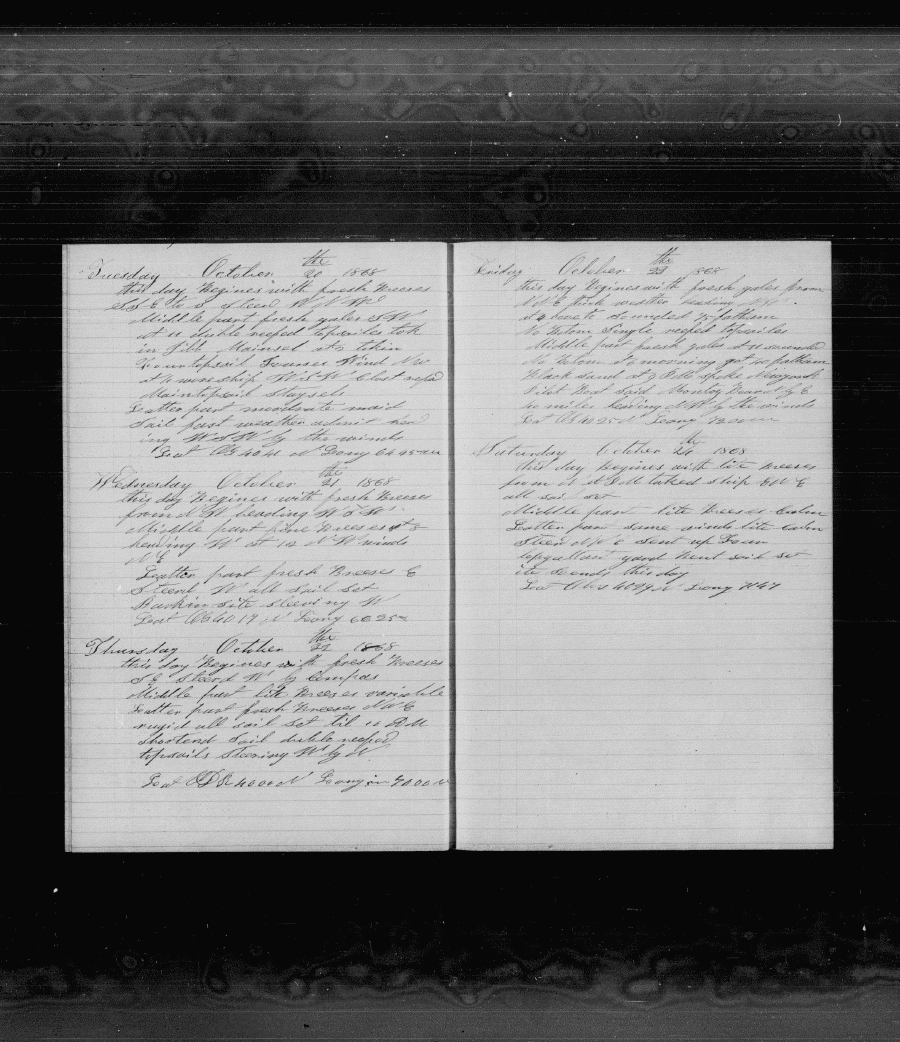 Tuesday October 20 the 1868
this day Begines with fresh Breeses
S E to S Steerd W N W
Middle part fresh gales S W
at 11 duble reefed topsailes tok
in Jibb Mainsel
Foretopsail Wind
at 4 ware ship W S W Clost refd
Maintopsail Staysels
Latter part moderate maid
Sail fast weather admit head
ing W S W by the winds
Lat Obs 40 41 N Long 64 45
Wednesday October 21 the 1868
this day Begines with fresh Breeses
from S W heading W
Middle part fine Breeses at
heading W at 12 N W winds
N E
Latter part fresh Breeses E
Steerd W all Sail Set
Barkin Site steering W
Lat Obs 40 19 N Long 66 25
Thursday October 22 the 1868
this day Begines with fresh Breeses
S E Steerd W by Compas
Middle part lite Breeses variable
Latter part fresh Breeses N N E
all sail set til 10 A M
Shortend Sail duble reefed
topsails Steering W by N
Lat D R 40 00 N Long in 70 00 W
Friday October 23 the 1868
this day Begines with fresh gales from
N N E thick weather heading
at 2 have to sounded 75 fathom
No Botom Single refed topsailes
Middle part fresh gales at 11 sounded
No Botom at morning got 20 fathom
Black sand at 9 A M spoke
Pilot Boat Said Montoz Beard by E
20 miles heading N W by the winds
Lat Obs 40 25 N Long 72
Saturday October 24 the 1868
this day Begines with lite Breeses
from N at P M taked ship E N E
all sail set
Middle part lite Breeses Calm
Latter part same winds lite Calm
Steerd sent up Fore
topgallant yard Bent sail set
it Ends this day
Lat Obs 40 29 N Long 71 47